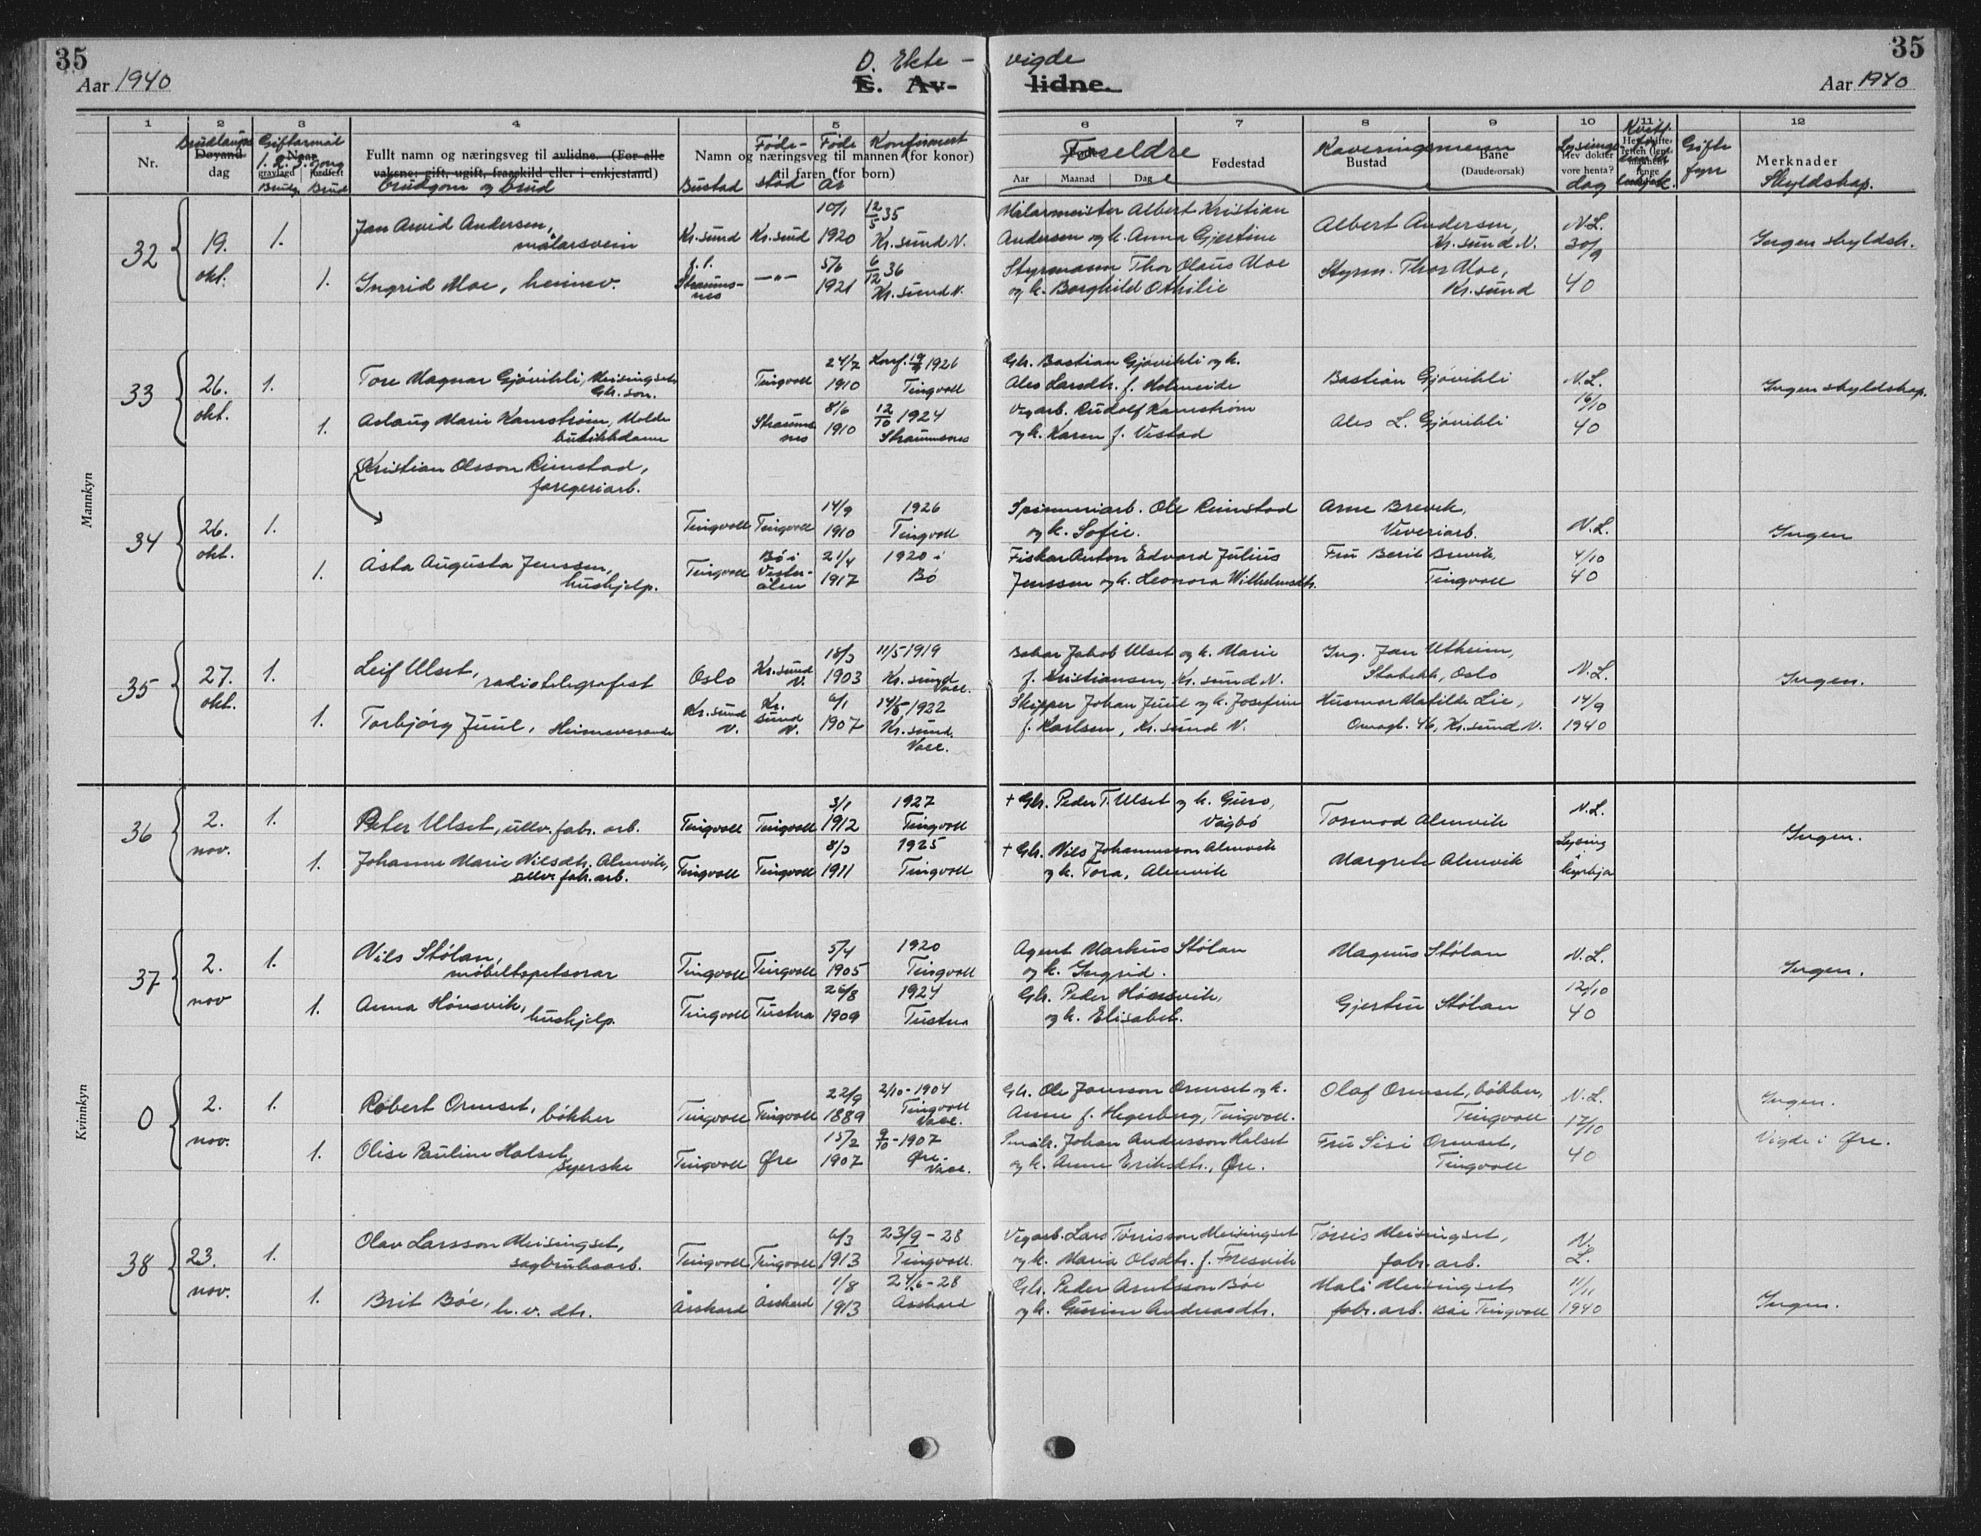 35
Aar 1940
D. Ekte - vigde
E. Av- lidne.
35
Aar 1940
1 2 3 4 5 6 7 8 9 10 11 12
Nr.
Brudlaups
Døyand
dag
Giftarmål
Brudg. Brud
Fullt namn og næringsveg til avlidne. (For alle
vaksne: gift, ugift, fraaskild eller i enkjestand)
brudgom og brud
Namn og næringsveg til mannen (for konor)
til faren (for born)
Bustad
Føde-
stad
Føde
år
Konfirmert
Foreldre
Aar Maanad Dag
Fødestad
Kaveringsmenn
Bustad
Bane
(Daudeorsak)
Hev dokter
vore henta?
dag
Gifte
fyrr
Merknader
Skyldskap.
Mannkyn
Kvinnkyn
32 19. okt. 1. Jan Arvid Andersen, målarsvein Kr.sund Kr.sund 10/1 1920 12/5 35 Kr.sund N. Målarmeister Albert Kristian Andersen og k. Anna Gjertine Albert Andersen, Kr.sund N. N.L. 30/9 Ingen skyldsk.
1. Ingrid Moe, heimev. Straums-nes —"— 5/6 1921 6/12 36 Kr.sund N. Styrmann Thor Olaus Moe og k. Borghild Othilie Styrm. Thor Moe, Kr.sund 40
33 26. okt. 1. Tore Magnar Gjøvikli, Meisingset Gbr.son. Tingvoll 24/7 1910 Konf. 1926 Tingvoll Gbr. Bastian Gjøvikli og k. Ales Larsdtr. f. Holmeide Bastian Gjøvikli N.L. 16/10 Ingen skyldskap.
1. Aslaug Marie Kamstrøm, Molde butikkdame Straums nes 8/6 1910 12/10 1924 Straumsnes Vegarb. Rudolf Kamstrøm og k. Karen f. Vestad Ales L. Gjøvikli 40
Kristian Olsson Rimstad,
fargeriarb.
34 26. okt. 1. Tingvoll Tingvoll 14/9 1910 1926 Tingvoll Spinneriarb. Ole Rimstad og k. Sofie. Arne Brevik, Veveriarb. N.L. Ingen
1. Åsta Augusta Jenssen, hushjelp. Tingvoll Bø i Vester-ålen 21/4 1917 1920 i Bø Fiskar Anton Edvard Julius Jenssen og k. Leonora Wilhelmsdtr. Fru Berit Brevik Tingvoll 4/10 40
35 27. okt. 1. Leif Ulset, radiotelegrafist Oslo Kr.sund N. 18/3 1903 11/5 1919 Kr.sund Vace. Baker Jakob Ulset og k. Marie f. Kristiansen, Kr.sund N. Ing. Jan Utheim, Stabekk, Oslo N.L. Ingen.
1. Torbjørg Juul, Heimeverande Kr.sund N. Kr. sund N. 6/1 1907 14/5 1922 Kr.sund. Vace. Skipper Johan Juul og k. Josefine f. Karlsen, Kr.sund N. Husmor Matilde Lie, 46, Kr.sund N. 14/9 1940
36 2. nov. 1. Peter Ulset, ullv. fabr. arb. Tingvoll Tingvoll 3/1 1912 1927 Tingvoll + Gbr. Peder T. Ulset og k. Guro, Vågbø Tormod Almvik N.L. Ingen.
1. Johanne Marie Nilsdtr. Almvik, ullv. fabr. arb. Tingvoll Tingvoll 8/3 1911 1925 Tingvoll + Gbr. Nils Johannesson Almvik og k. Tora, Almvik Margrete Almvik Lysing i kyrkja
37 2. nov 1. Nils Stølan, møbeltapetserar Tingvoll Tingvoll 5/4 1905 1920 Tingvoll Agent Markus Stølan og k. Ingrid. Magnus Stølan N.L. Ingen.
1. Anna Hønsvik, hushjelp. Tingvoll Tustna 26/8 1909 1924 Tustna Gbr. Peder Hønsvik, og k. Elisabet. Gjertru Stølan 12/10 40
0 2. nov. 1. Robert Ormset, bøkker Tingvoll Tingvoll 22/9 1889 2/10-1904 Tingvoll Vace. Gbr. Ole Jonsson Ormset og k. Anne f. Hegerberg, Tingvoll. Olaf Ormset, bøkker, Tingvoll N.L. 17/10 Ingen.
1. Olise Pauline Holset, syerske Tingvoll Øre 15/2 1907 9/10-1907 Øre. Vace. Småbr. Johan Andersson Holset og k. Anne Eriksdtr., Øre. Fru Sisi Ormset, Tingvoll 40 Vigde i Øre.
38 23. nov. 1. Olav Larsson Meisingset, sagbruksarb. Tingvoll Tingvoll 6/3 1913 23/9-28 Tingvoll Vegarb. Lars Tørrisson Meisingset og k. Maria Olsdtr. f. Fresvik Tørris Meisingset, fabr. arb. N. L.
1. Brit Bøe, h.v. dtr. Åsskard Åsskard 1/8 1913 24/6-28 Åsskard Gbr. Peder Asmtsson Bøe og k. Gurine Andreasdtr. Mali Meisingset fabr. arb. Tingvoll 11/11 1940 Ingen.